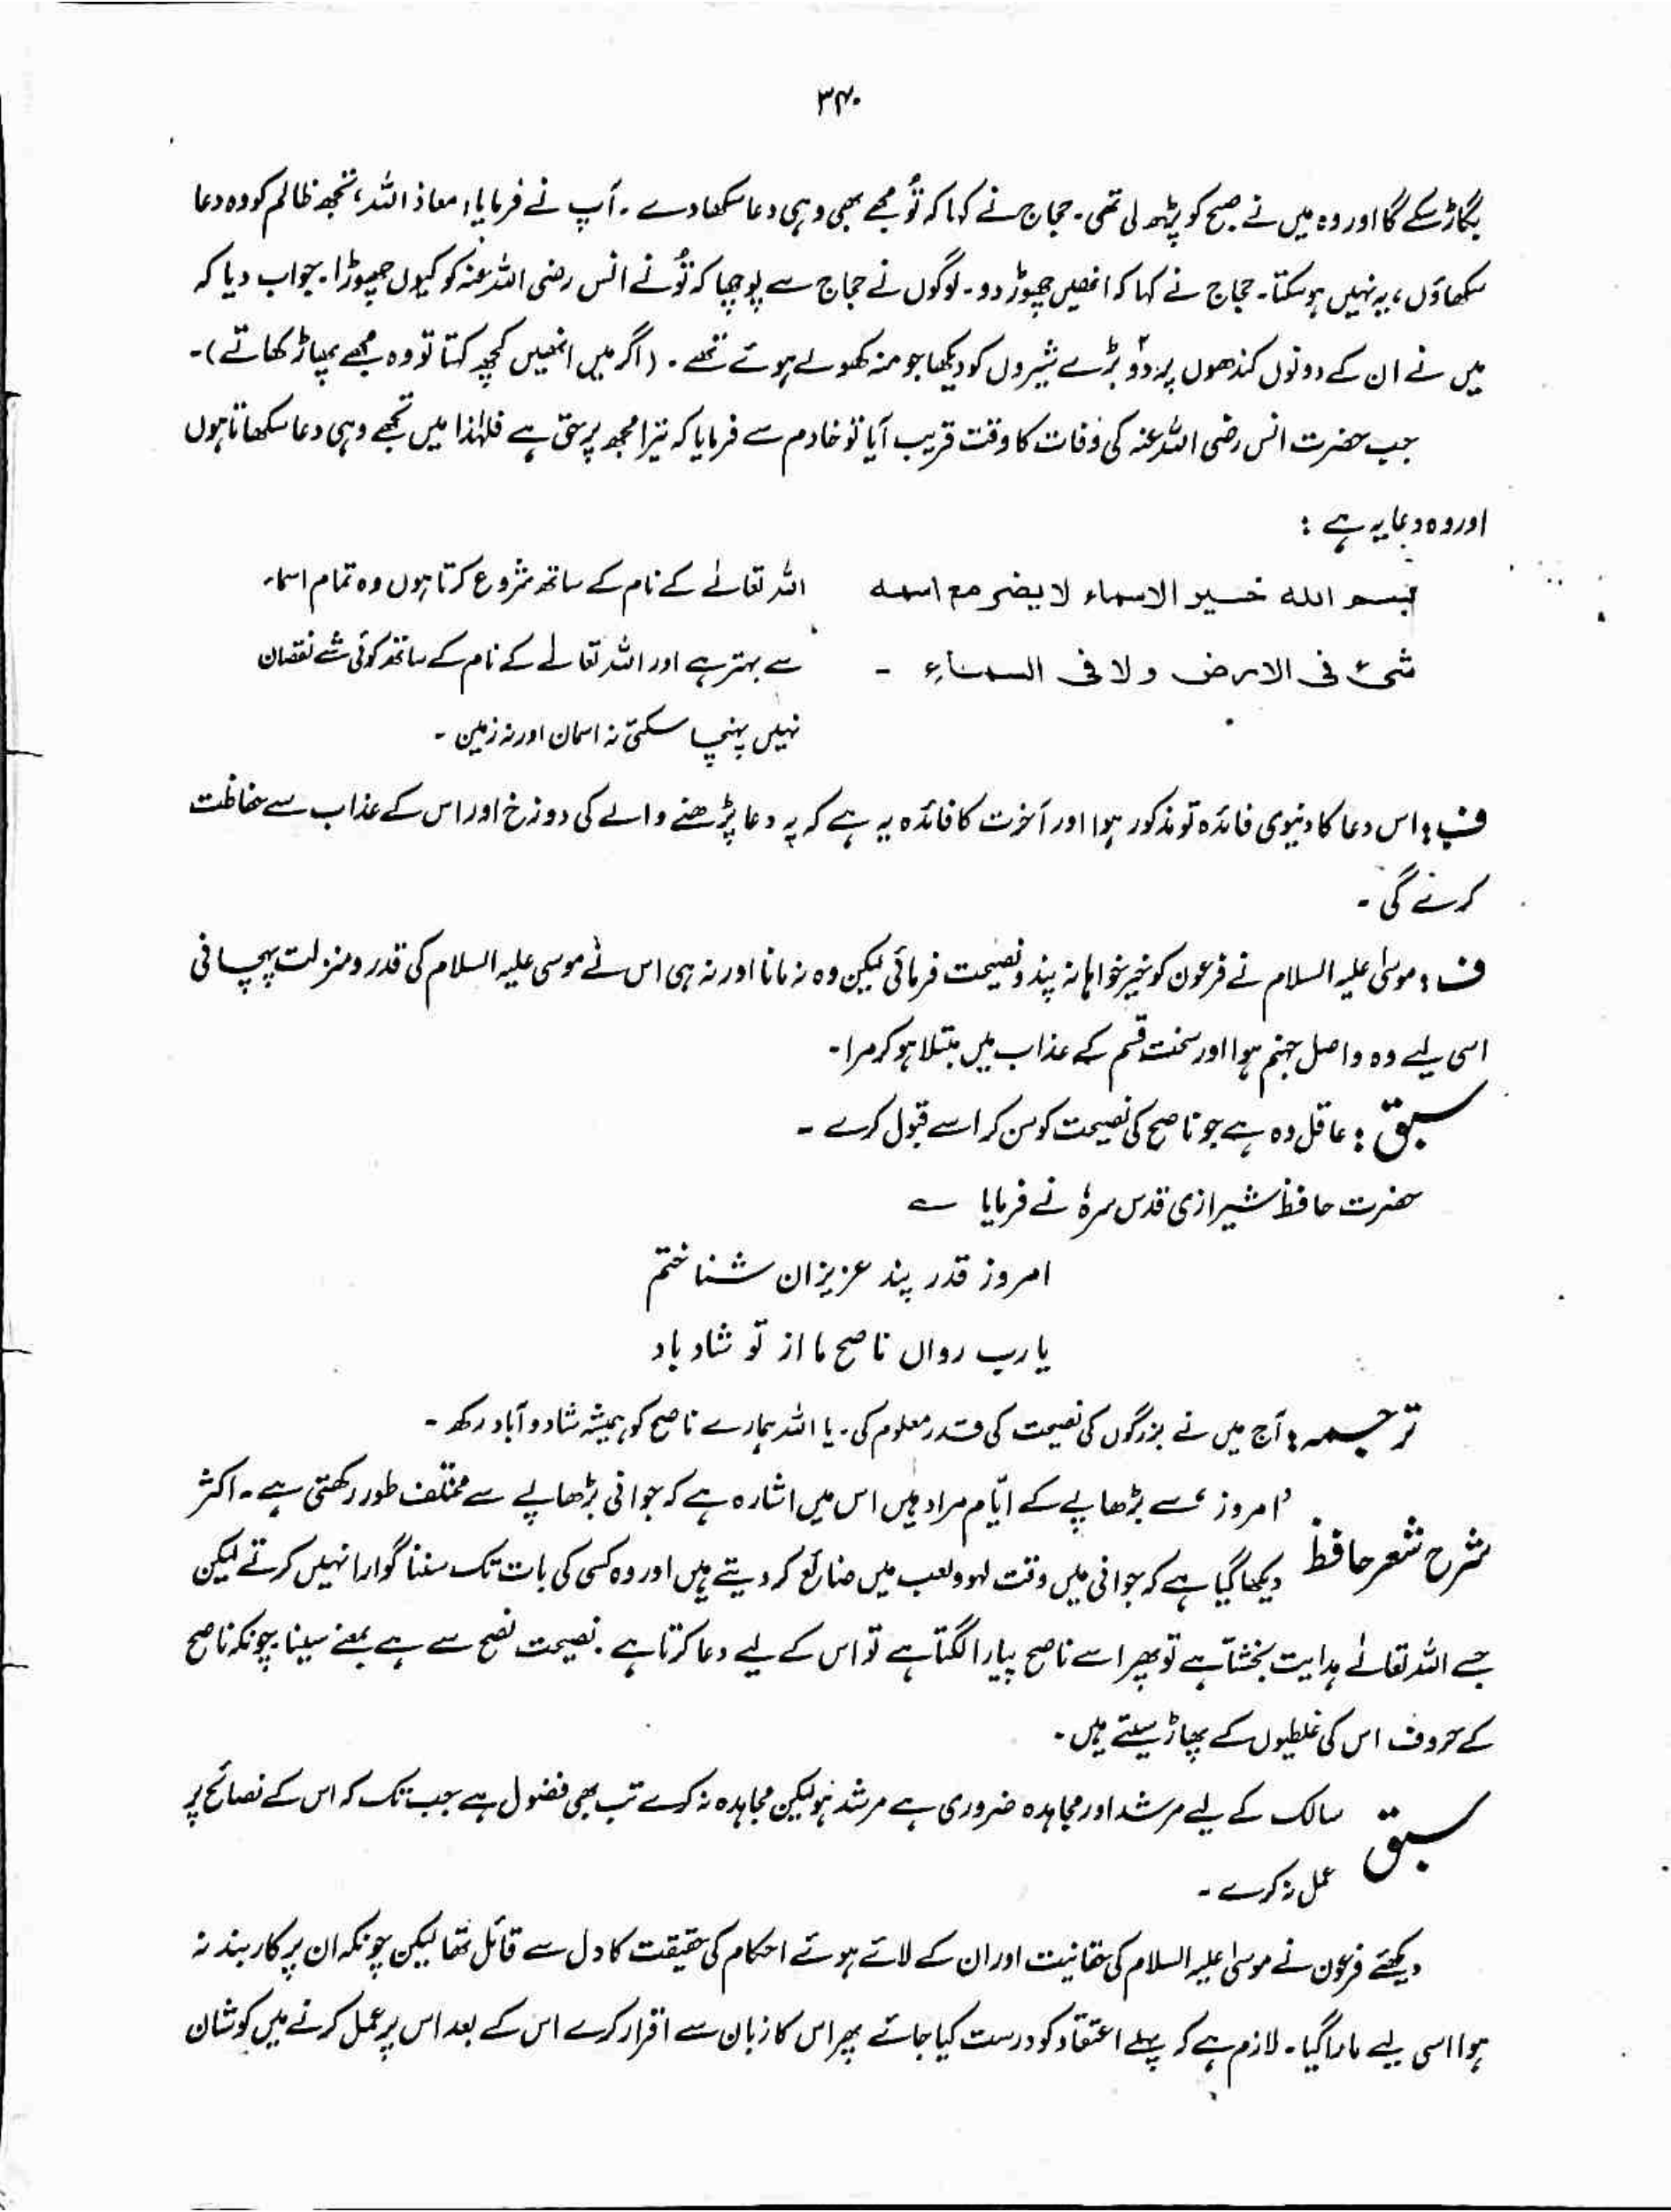 ۳۴۰
بگاڑ سکے گا اور وہ میں نے صبح کو پڑھ لی تھی۔ حجاج نے کہا کہ تُو مجھے بھی وہی دعا سکھا دے۔ آپ نے فرمایا، معاذ اللہ، تجھ ظالم کو وہ دعا
سکھاؤں، یہ نہیں ہو سکتا۔ حجاج نے کہا کہ انھیں چھوڑ دو۔ لوگوں نے حجاج سے پوچھا کہ تُو نے انس رضی اللہ عنہ کو کیوں چھوڑا۔ جواب دیا کہ
میں نے ان کے دونوں کندھوں پر دوؔ بڑے شیروں کو دیکھا جو منہ کھولے ہوئے تھے۔ (اگر میں انھیں کچھ کہتا تو وہ مجھے پھاڑ کھاتے)۔
جب حضرت انس رضی اللہ عنہ کی وفات کا وقت قریب آیا تو خادم سے فرمایا کہ تیرا مجھ پر حق ہے فلہٰذا میں تجھے وہی دعا سکھاتا ہوں
اور وہ دعا یہ ہے :
بسم الله خیر الاسماء لا یضر مع اسمه
شیء فی الارض و لا فی السماءِ ۔
اللہ تعالےٰ کے نام کے ساتھ شروع کرتا ہوں وہ تمام اسماء
سے بہتر ہے اور اللہ تعالےٰ کے نام کے ساتھ کوئی شے نقصان
نہیں پہنچا سکتی نہ آسمان اور نہ زمین ۔
ف : اس دعا کا دنیوی فائدہ تو مذکور ہوا اور آخرت کا فائدہ یہ ہے کہ یہ دعا پڑھنے والے کی دوزخ اور اس کے عذاب سے حفاظت
کرے گی ۔
ف : موسیٰ علیہ السلام نے فرعون کو خیر خواہانہ پند و نصیحت فرمائی لیکن وہ نہ مانا اور نہ ہی اس نے موسیٰ علیہ السلام کی قدر و منزلت پہچانی
اسی لیے وہ واصل جہنم ہوا اور سخت قسم کے عذاب میں مبتلا ہو کر مرا۔
سبق : عاقل وہ ہے جو ناصح کی نصیحت کو سن کر اسے قبول کرے ۔
حضرت حافظ شیرازی قدس سرہٗ نے فرمایا ؎
امروز قدر پند عزیزان شناختم
یارب روان ناصح ما از تو شاد باد
ترجمہ : آج میں نے بزرگوں کی نصیحت کی قدر معلوم کی۔ یا اللہ ہمارے ناصح کو ہمیشہ شاد و آباد رکھ ۔
شرح شعر حافظ
'امروز' سے بڑھاپے کے ایّام مراد ہیں اس میں اشارہ ہے کہ جوانی بڑھاپے سے مختلف طور رکھتی ہے۔ اکثر
دیکھا گیا ہے کہ جوانی میں وقت لہو و لعب میں ضائع کر دیتے ہیں اور وہ کسی کی بات تک سننا گوارا نہیں کرتے لیکن
جسے اللہ تعالےٰ ہدایت بخشتا ہے تو پھر اسے ناصح پیارا لگتا ہے تو اس کے لیے دعا کرتا ہے۔ نصیحت نصح سے ہے بمعنے سینا چونکہ ناصح
کے حروف اس کی غلطیوں کے پھاڑ سیتے ہیں۔
سبق
سالک کے لیے مرشد اور مجاہدہ ضروری ہے مرشد ہو لیکن مجاہدہ نہ کرے تب بھی فضول ہے جب تک کہ اس کے نصائح پر
عمل نہ کرے ۔
دیکھئے فرعون نے موسیٰ علیہ السلام کی حقانیت اور ان کے لائے ہوئے احکام کی حقیقت کا دل سے قائل تھا لیکن چونکہ ان پر کاربند نہ
ہوا اسی لیے مارا گیا۔ لازم ہے کہ پہلے اعتقاد کو درست کیا جائے پھر اس کا زبان سے اقرار کرے اس کے بعد اس پر عمل کرنے میں کوشان